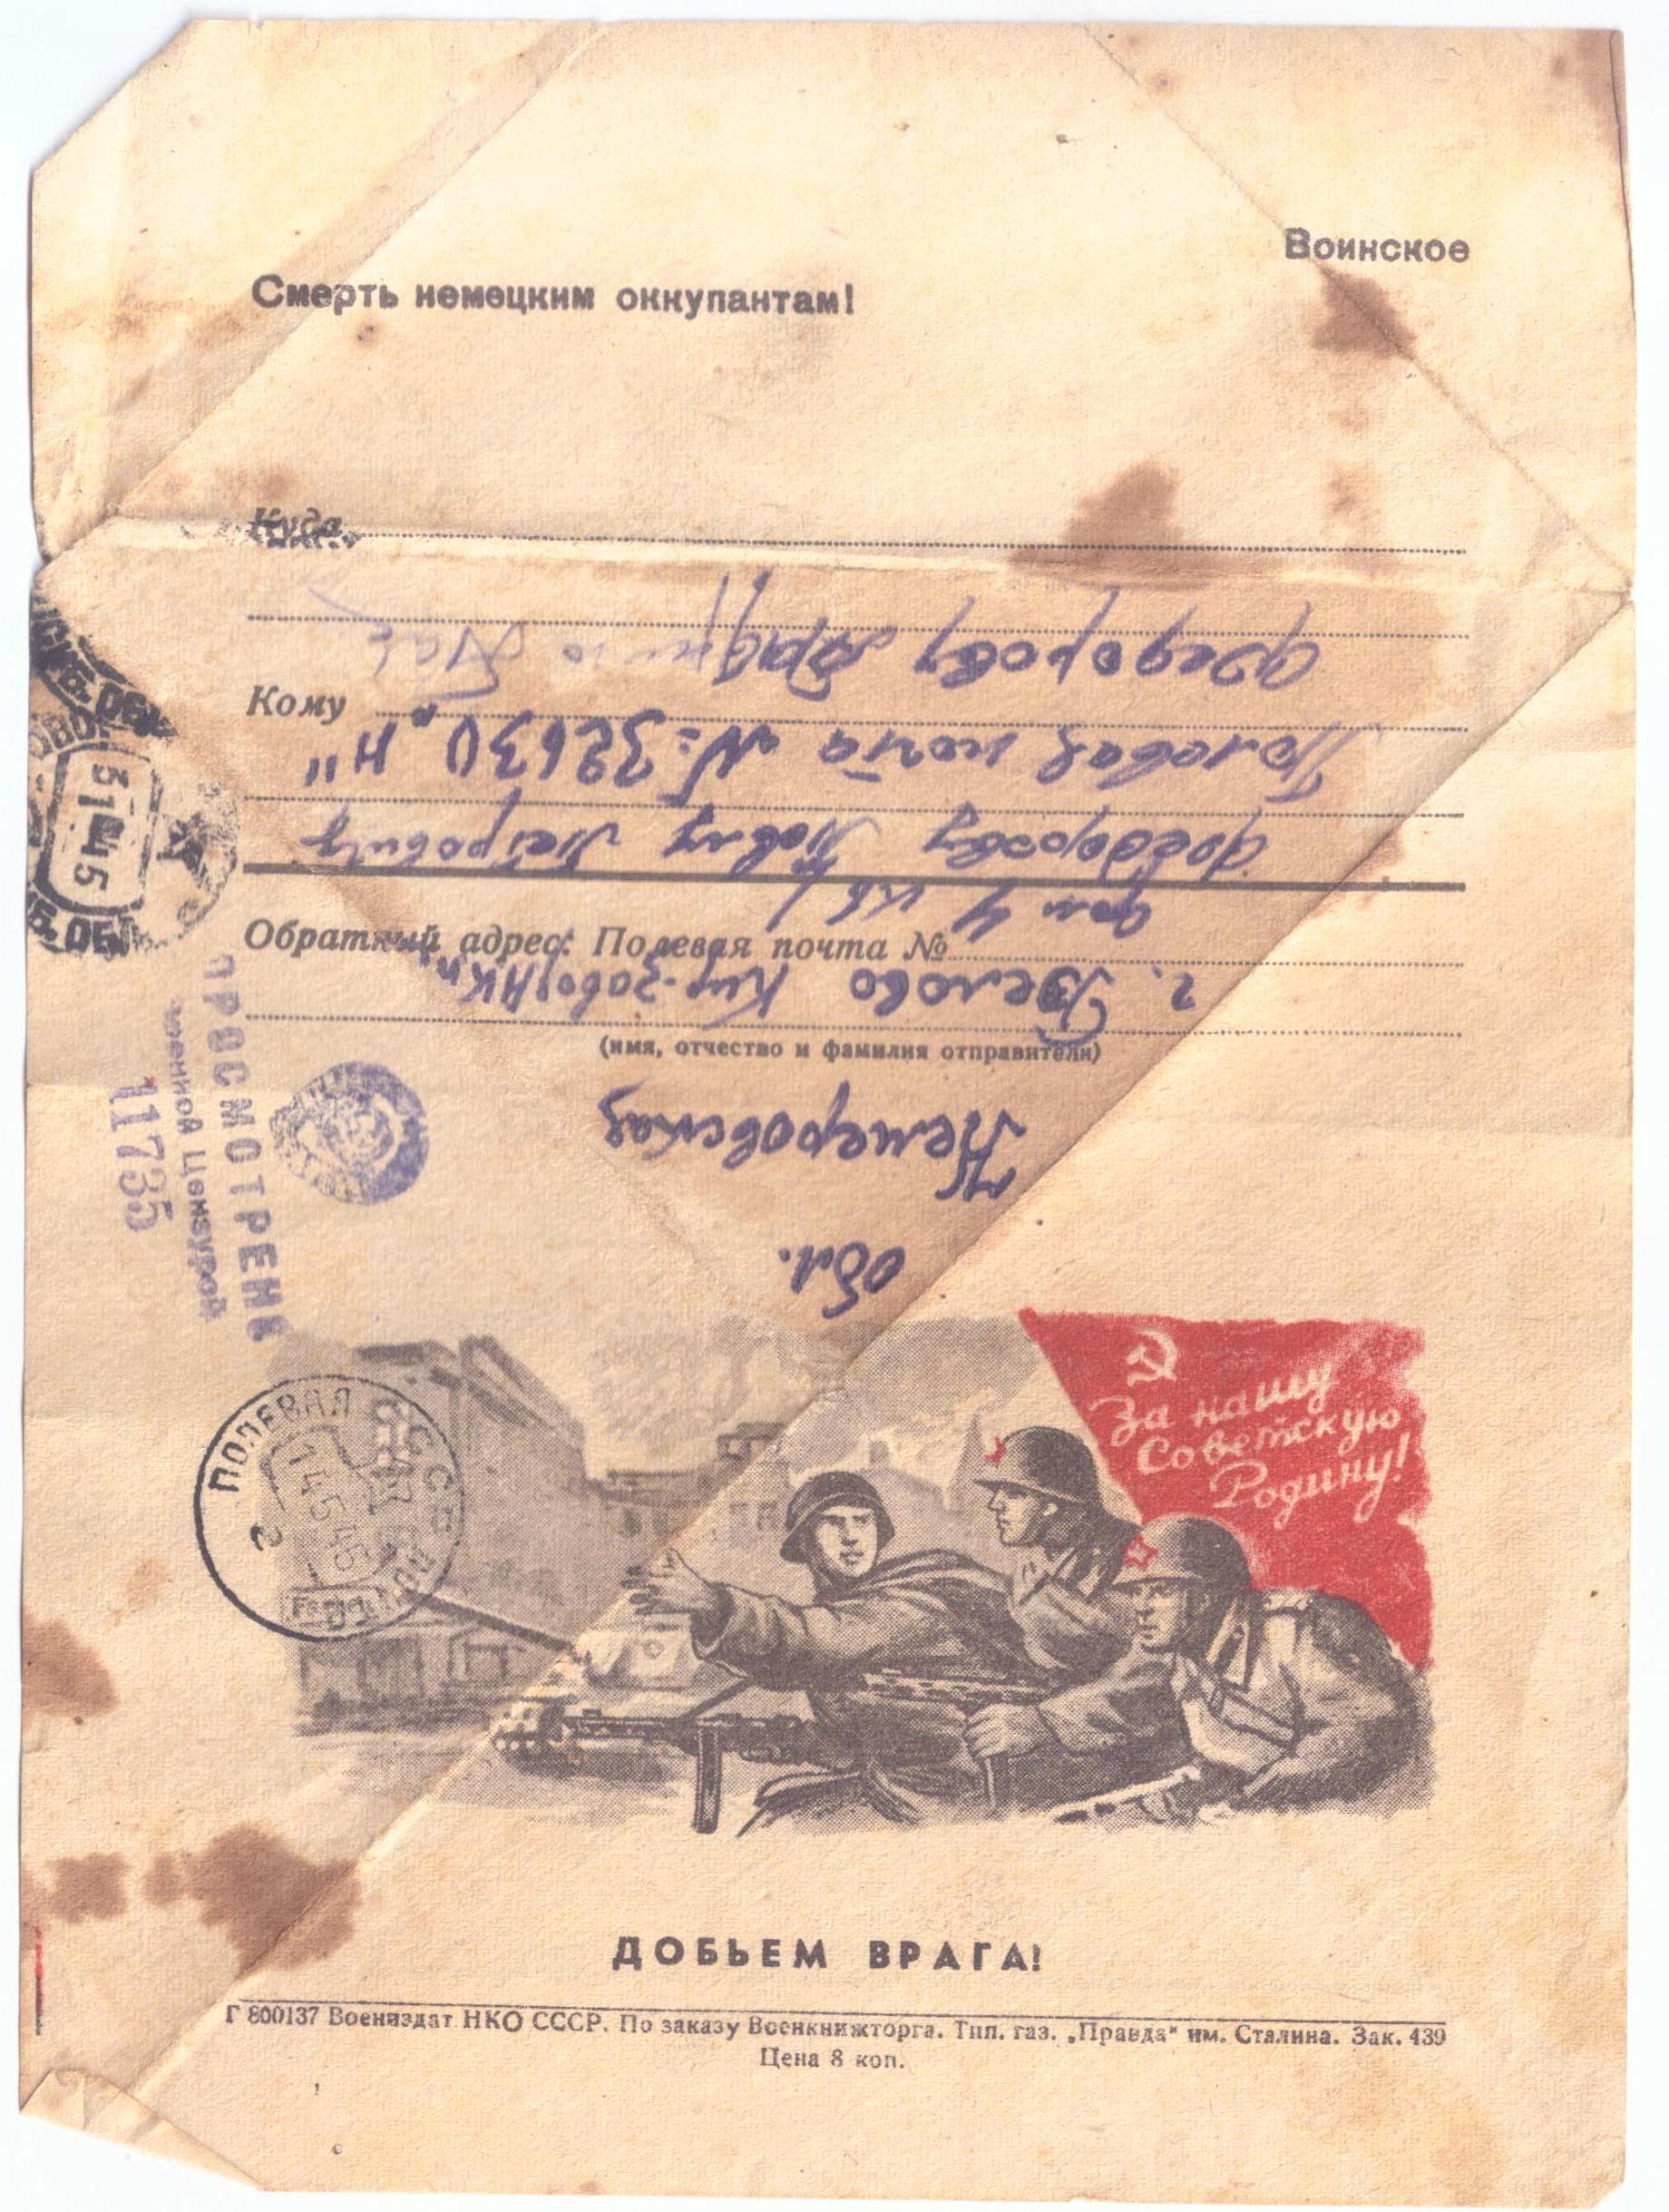 Воинское
Смерть немецким оккупантам!
Куда
Кому
Обратный адрес: Полевая почта №
(имя, отчество и фамилия отправителя)
обл.
Кемеровская
г. Белово
дом 4 кв
Федорову Павлу Петровичу
Полевая почта N= 32630 „Н"
Федорову
ПРОСМОТРЕНО
Военной Цензурой
11735
ПОЛЕВАЯ ПОЧТА
СССР
14 5 45
За нашу
Советскую
Родину!
ДОБЬЕМ ВРАГА!
Г 800137 Воениздат НКО СССР. По заказу Военкнижторга. Тип. газ. „Правда" им. Сталина. Зак. 439
Цена 8 коп.